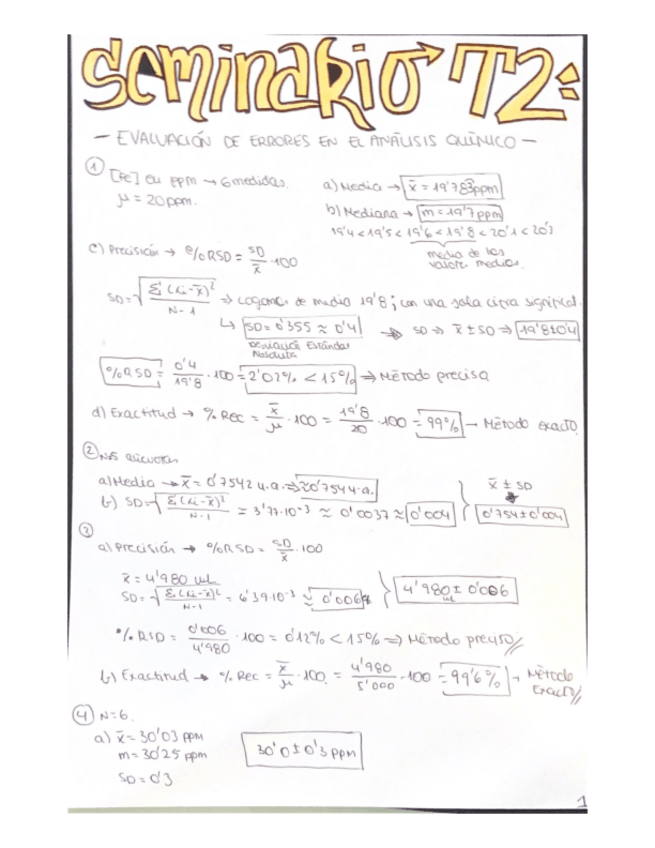 SEMINARIO T2:
- EVALUACIÓN DE ERRORES EN EL ANÁLISIS QUÍMICO -
① [Fe] en ppm → 6 medidas.
μ = 20 ppm.
a) Media → x̄ = 19'783 ppm
b) Mediana → m = 19'7 ppm
19'4 < 19'5 < 19'6 < 19'8 < 20'1 < 20'3
media de los
valores medios.
c) Precisión → %RSD = SD/x̄ · 100
SD = √(Σ(xi - x̄)²/N-1) ⇒ Cogemos de media 19'8 ; con una sola cifra signific.
↳ SD = 0'355 ≈ 0'4 ⇒ SD ⇒ x̄ ± SD ⇒ 19'8±0'4
Desviación Estándar
Absoluta
%RSD = 0'4/19'8 · 100 = 2'02% < 15% ⇒ Método preciso
d) Exactitud → % Rec = x̄/μ · 100 = 19'8/20 · 100 = 99% → Método exacto
② NAS alícuotas
a) Media → x̄ = 0'7542 u.a. ⇒ ≈ 0'754 u.a.
b) SD = √(Σ(xi - x̄)²/N-1) = 3'77·10⁻³ ≈ 0'0037 ≈ 0'004
x̄ ± SD
0'754 ± 0'004
③
a) Precisión → %RSD = SD/x̄ · 100
x̄ = 4'980 mL
SD = √(Σ(xi - x̄)²/N-1) = 6'39·10⁻³ ≈ 0'006
4'980 ± 0'006
mL
% RSD = 0'006/4'980 · 100 = 0'12% < 15% ⇒ Método preciso//
b) Exactitud → % Rec = x̄/μ · 100 = 4'980/5'000 · 100 = 99'6% → Método
Exacto//
④ N = 6.
a) x̄ = 30'03 ppm
m = 30'25 ppm
SD = 0'3
30'0 ± 0'3 ppm
1